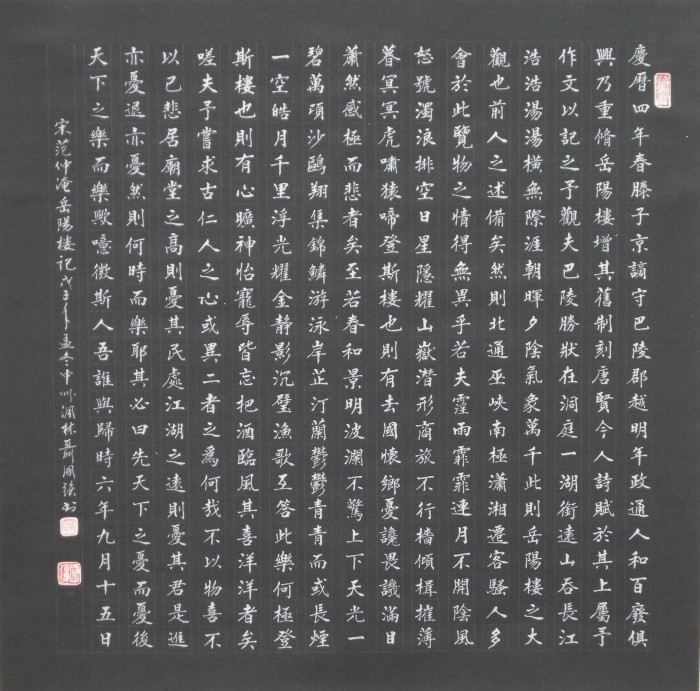 慶曆四年春滕子京謫守巴陵郡越明年政通人和百廢俱
興乃重脩岳陽樓增其舊制刻唐賢今人詩賦於其上屬予
作文以記之予觀夫巴陵勝狀在洞庭一湖銜遠山吞長江
浩浩湯湯橫無際涯朝暉夕陰氣象萬千此則岳陽樓之大
觀也前人之述備矣然則北通巫峽南極瀟湘遷客騷人多
會於此覽物之情得無異乎若夫霪雨霏霏連月不開陰風
怒號濁浪排空日星隱耀山嶽潛形商旅不行檣傾楫摧薄
暮冥冥虎嘯猿啼登斯樓也則有去國懷鄉憂讒畏譏滿目
蕭然感極而悲者矣至若春和景明波瀾不驚上下天光一
碧萬頃沙鷗翔集錦鱗游泳岸芷汀蘭鬱鬱青青而或長煙
一空皓月千里浮光耀金靜影沉璧漁歌互答此樂何極登
斯樓也則有心曠神怡寵辱皆忘把酒臨風其喜洋洋者矣
嗟夫予嘗求古仁人之心或異二者之為何哉不以物喜不
以己悲居廟堂之高則憂其民處江湖之遠則憂其君是進
亦憂退亦憂然則何時而樂耶其必曰先天下之憂而憂後
天下之樂而樂歟噫微斯人吾誰與歸時六年九月十五日
宋范仲淹岳陽樓記戊子年孟冬中州林聶風強書